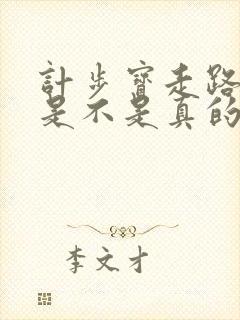 計步寶走路
是不是真的
李文才